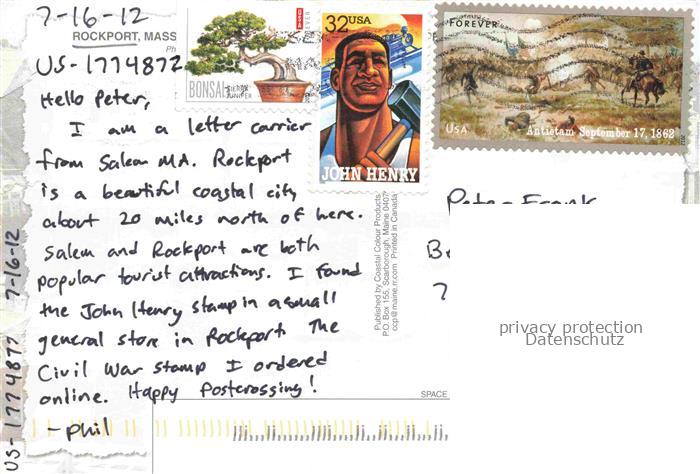 7-16-12
ROCKPORT, MASS
Ph
US-1774872
Hello Peter,
I am a letter carrier
from Salem MA. Rockport
is a beautiful coastal city
about 20 miles north of here.
Salem and Rockport are both
popular tourist attractions. I found
the John Henry stamp in a small
general store in Rockport The
Civil War stamp I ordered
online. Happy Postcrossing!
- phil
US-1774877 7-16-12
BONSAI
SIERRA
JUNIPER
USA
FOREVER
32USA
JOHN HENRY
FOREVER
USA
Antietam September 17, 1862
2012
Published by Coastal Colour Products
P.O. Box 155, Scarborough, Maine 0407
ccp@maine.rr.com Printed in Canada
Peter Frank
privacy protection
Datenschutz
SPACE